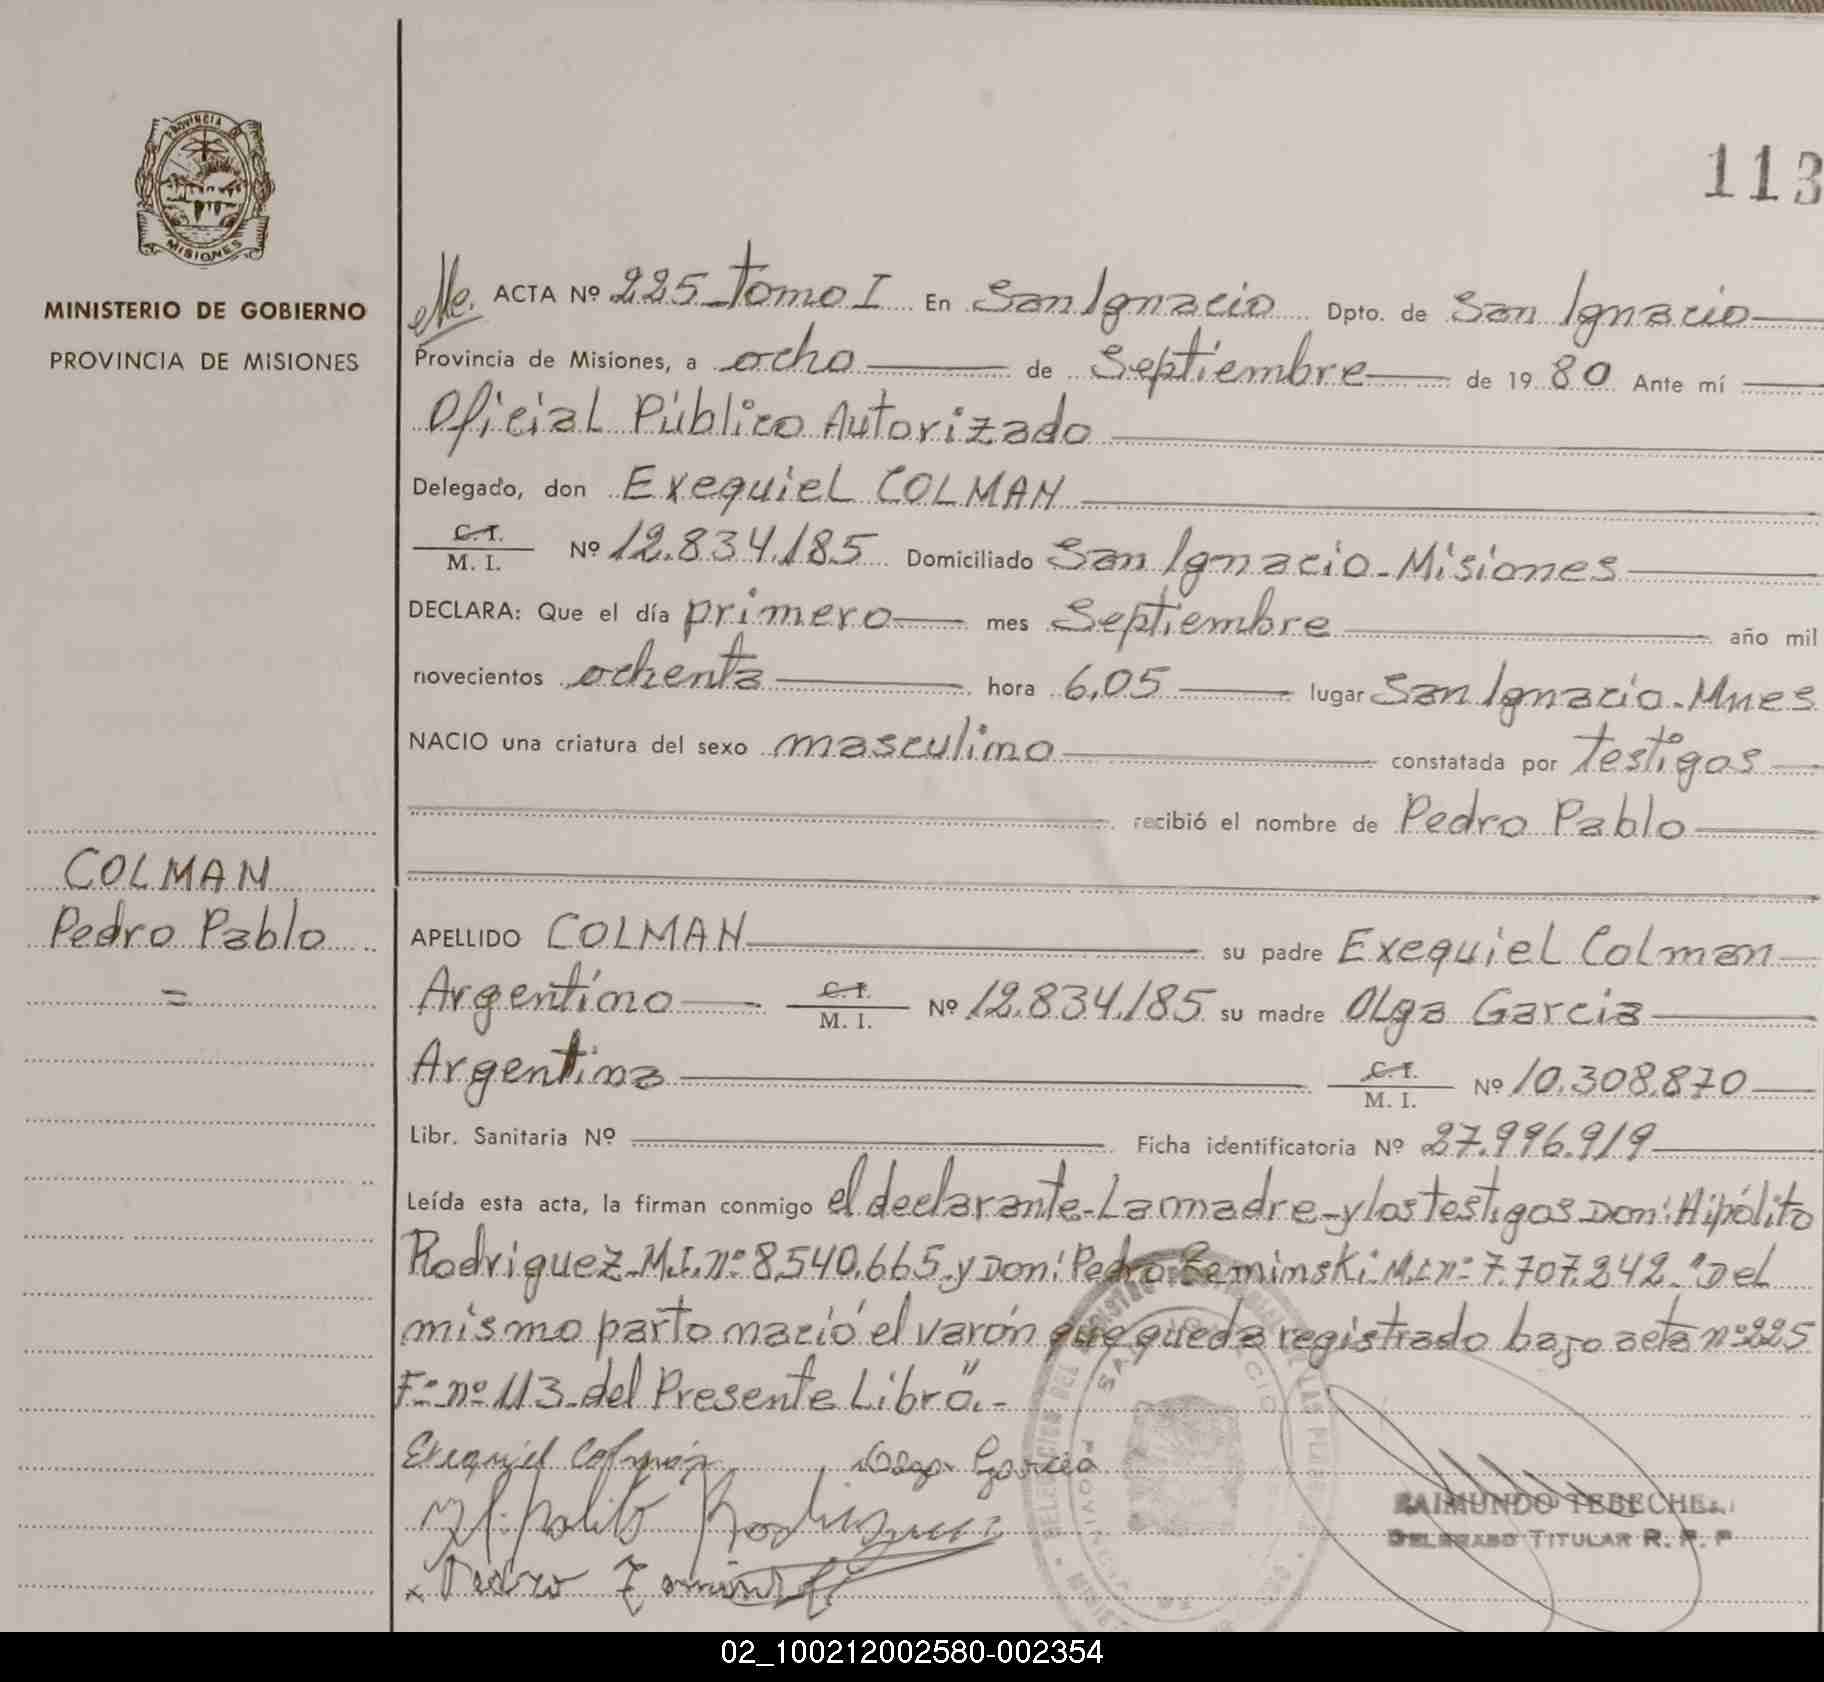 PROVINCIA DE
MISIONES
MINISTERIO DE GOBIERNO
PROVINCIA DE MISIONES
COLMAN
Pedro Pablo
=
113
ACTA Nº 225 Tomo I En San Ignacio Dpto. de San Ignacio
Provincia de Misiones, a ocho de Septiembre de 19 80 Ante mí
Oficial Público Autorizado
Delegado, don Exequiel COLMAN
C. I.
M. I. Nº 12.834.185 Domiciliado San Ignacio - Misiones
DECLARA: Que el día primero mes Septiembre año mil
novecientos ochenta hora 6,05 lugar San Ignacio - Mnes
NACIO una criatura del sexo masculino constatada por testigos
recibió el nombre de Pedro Pablo
APELLIDO COLMAN su padre Exequiel Colman
Argentino C. I. M. I. Nº 12.834.185 su madre Olga Garcia
Argentina C. I. M. I. Nº 10.308.870
Libr. Sanitaria Nº Ficha identificatoria Nº 27.996.919
Leída esta acta, la firman conmigo el declarante - La madre - y los testigos Don: Hipólito
Rodriguez - M.I. nº 8.540.665 - y Don: Pedro Zeminski M.I. nº 7.707.242. "Del
mismo parto nació el varón que queda registrado bajo acta nº 225
Fº nº 113 - del Presente Libro". -
Exequiel Colmán Olga García
Hipolito Rodriguez
x Pedro Zeminski
SAN IGNACIO
PROVINCIA
RAIMUNDO TEBECHE
DELEGADO TITULAR R. P. P
02_100212002580-002354